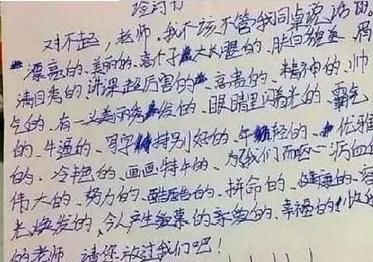 检讨书
对不起，老师，我不该不管我同桌说话的、
漂亮的、美丽的、高个子、大长腿的、肤白貌美、眉
清目秀的、讲课超厉害的、高贵的、精神的、帅
气的、有一头美丽秀发的、眼睛里闪光的、霸气
的、牛逼的、写字特别好的、年轻的、优雅
的、冷艳的、画画特牛的、为我们而呕心沥血的
伟大的、努力的、酷酷的、拼命的、健康的、容
光焕发的、令人产生羡慕的亲爱的、幸福的
的老师 请您放过我们吧！